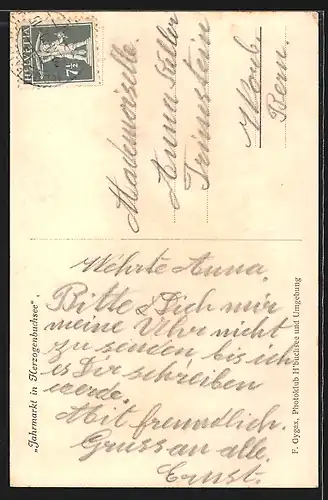 HELVETIA
7½
Mademoiselle.
Anna Keller
Trimstein
Worb
Bern.
Wehrte Anna.
Bitte Dich mir
meine Uhr nicht
zu senden bis ich
es Dir schreiben
werde.
Mit freundlich.
Gruss an alle.
Ernst.
„Jahrmarkt in Herzogenbuchsee“
F. Gygax, Photoklub H'buchsee und Umgebung